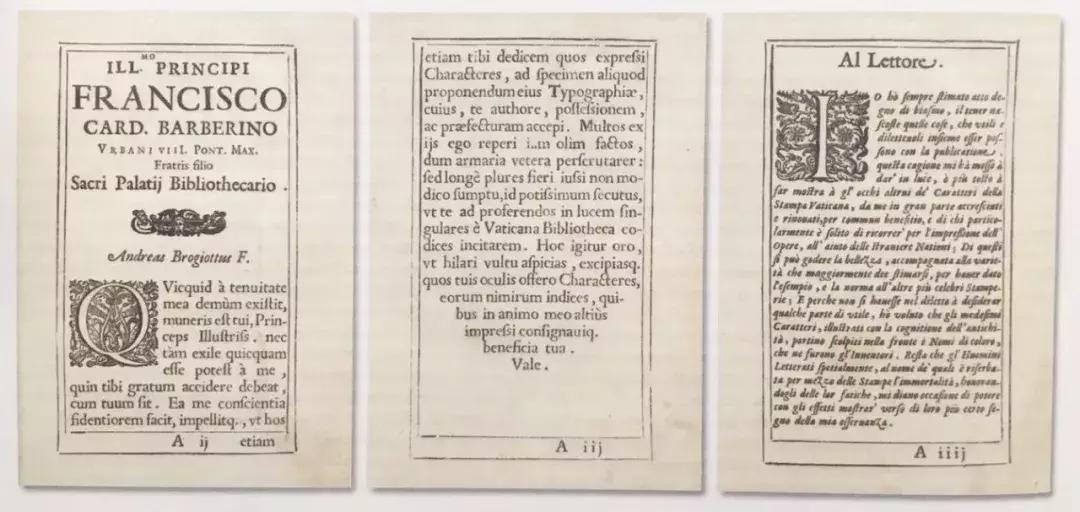 ILL.MO PRINCIPI
FRANCISCO
CARD. BARBERINO
VRBANI VIII. PONT. MAX.
Fratris filio
Sacri Palatij Bibliothecario .
Andreas Brogiottus F.
QVicquid à tenuitate
mea demùm existit,
muneris est tui, Prin-
ceps Illustriss. nec
tàm exile quicquam
esse potest à me ,
quin tibi gratum accidere debeat,
cum tuum sit. Ea me conscientia
fidentiorem facit, impellitq. , vt hos
A ij etiam
etiam tibi dedicem quos expressi
Characteres , ad specimen aliquod
proponendum eius Typographiæ,
cuius , te authore , possessionem ,
ac præfecturam accepi. Multos ex
ijs ego reperi iam olim factos ,
dum armaria vetera perscrutarer :
sed longè plures fieri iussi non mo-
dico sumptu,id potissimum secutus,
vt te ad proferendos in lucem sin-
gulares è Vaticana Bibliotheca co-
dices incitarem. Hoc igitur oro ,
vt hilari vultu aspicias , excipiasq.
quos tuis oculis offero Characteres,
eorum nimirum indices , qui-
bus in animo meo altiùs
impressi consignauiq.
beneficia tua .
Vale .
A iij
Al Lettore.
IO hò sempre stimato atto de-
gno di biasmo , il tener na-
scoste quelle cose, che vtili e
diletteuoli insieme esser pos-
sono con la publicatione .
questa cagione mi hà mosso à
dar' in luce, è più tosto à
far mostra à gl' occhi altrui de' Caratteri della
Stampa Vaticana, da me in gran parte accresciuti
e rinouati,per commun benefitio, e di chi partico-
larmente è solito di ricorrer' per l'impressione dell'
Opere, all' aiuto delle straniere Nationi; Di questi
si può godere la bellezza , accompagnata alla varie-
tà che maggiormente dee stimarsi, per hauer dato
l'esempio , e la norma all'altre più celebri Stampe-
rie ; E perche non si hauesse nel diletto à desiderar
qualche parte di vtile, hò voluto che gli medesimi
Caratteri, illustrati con la cognitione dell'antichi-
tà, portino scolpiti nella fronte i Nomi di coloro,
che ne furono gl'Inuentori. Resta che gl'Huomini
Letterati spetialmente, al nome de' quali è riserba-
ta per mezza delle Stampe l'immortalità, honoran-
dogli delle lor fatiche, mi diano occasione di potere
con gli effetti mostrar' verso di loro più certo se-
gno della mia osseruanza.
A iiij